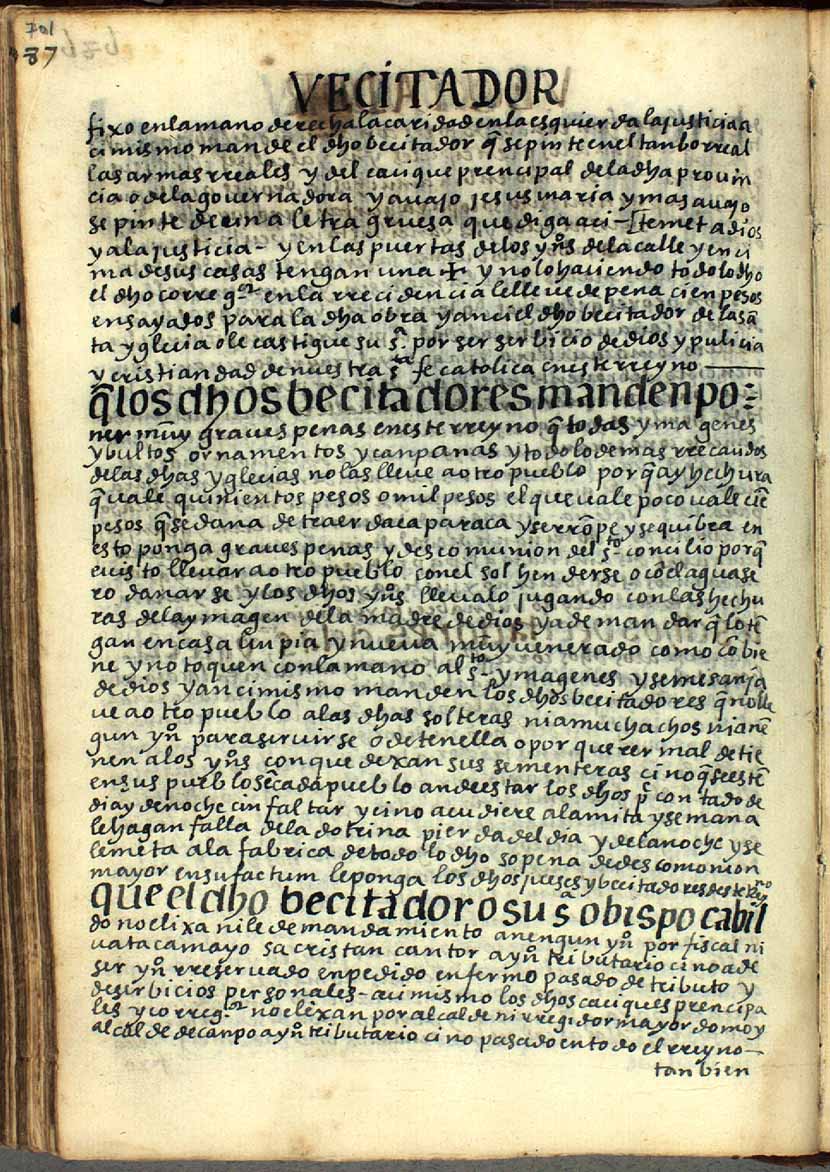 701
687
VECITADOR
fixo en la mano derecha la caridad en la esquierda la justicia a
cimismo mande el dho becitador q̃ se pinte en el tanbor rreal
las armas rreales y del cacique prencipal de la dha provin
cia o de la governadora y avajo jesus maria y mas avajo
se pinte decina letra gruesa que diga aci – temet a dios
y a la justicia – y en las puertas de los yñs de la calle y enci
ma de sus casas tengan una ✝ y no lo haciendo todo lo dho
el dho correg.or en la rrecidencia le lleve de pena cien pesos
ensayados para la dha obra y anci el dho becitador de la sã
ta yglecia o le castigue su s.a por ser serbicio de dios y pulicia
y cristiandad de nuestra s.ta fe catolica en este rreyno —
q̃ los dhos becitadores manden po=
ner muy graves penas en este rreyno q̃ todas ymagenes
y bultos ornamentos y canpanas y todo lo demas rrecaudos
de las dhas yglecias no las lleve a otro pueblo por q̃ ay hechura
q̃ vale quinientos pesos o mil pesos el que vale poco vale ciẽ
pesos q̃ se dana de traer daca para ca y se rrõpe y se quibra en
esto ponga graves penas y descomunion del s.to concilio porq̃
e visto llevar a otro pueblo con el sol henderse o cõ el aguase
ro danarse y los dhos yñs llevalo jugando con las hechu
ras de la ymagen de la madre de dios y a de mandar q̃ lo tẽ
gan en casa linpia y nueva muy venerado como cõbie
ne y no toquen con la mano al s.to ymagenes y semejansa
de dios y ancimismo manden los dhos becitadores q̃ no lle
ve a otro pueblo a las dhas solteras ni a muchachos ni a nẽ
gun yñ para servirse o detenella o por querer mal detie
nen a los yñs con que dexan sus sementeras cino q̃ se estẽ
en sus pueblos ẽ cada pueblo an de estar los dhos p.e contado de
dia y de noche cin faltar y ci no acudiere a la mita y semana
le hagan falla de la dotrina pierda del dia y de la noche y se
le meta a la fabrica de todo lo dho so pena de descomonion
mayor en su factum le ponga los dhos jueses y becitadores deste rreyno
que el dho becitador o su s.a obispo cabil
do no elixa ni le de mandamiento a nengun yñ por fiscal ni
uatacamayo sacristan cantor a yñ tributario cino a de
ser yñ rreservado enpedido enfermo pasado de tributo y
de serbicios personales – acimismo los dhos caciques prencipa
les y correg.or no elixan por alcalde ni rregidor mayordomo y
alcalde de canpo a yñ tributario cino pasado en todo el rreyno –
tanbien